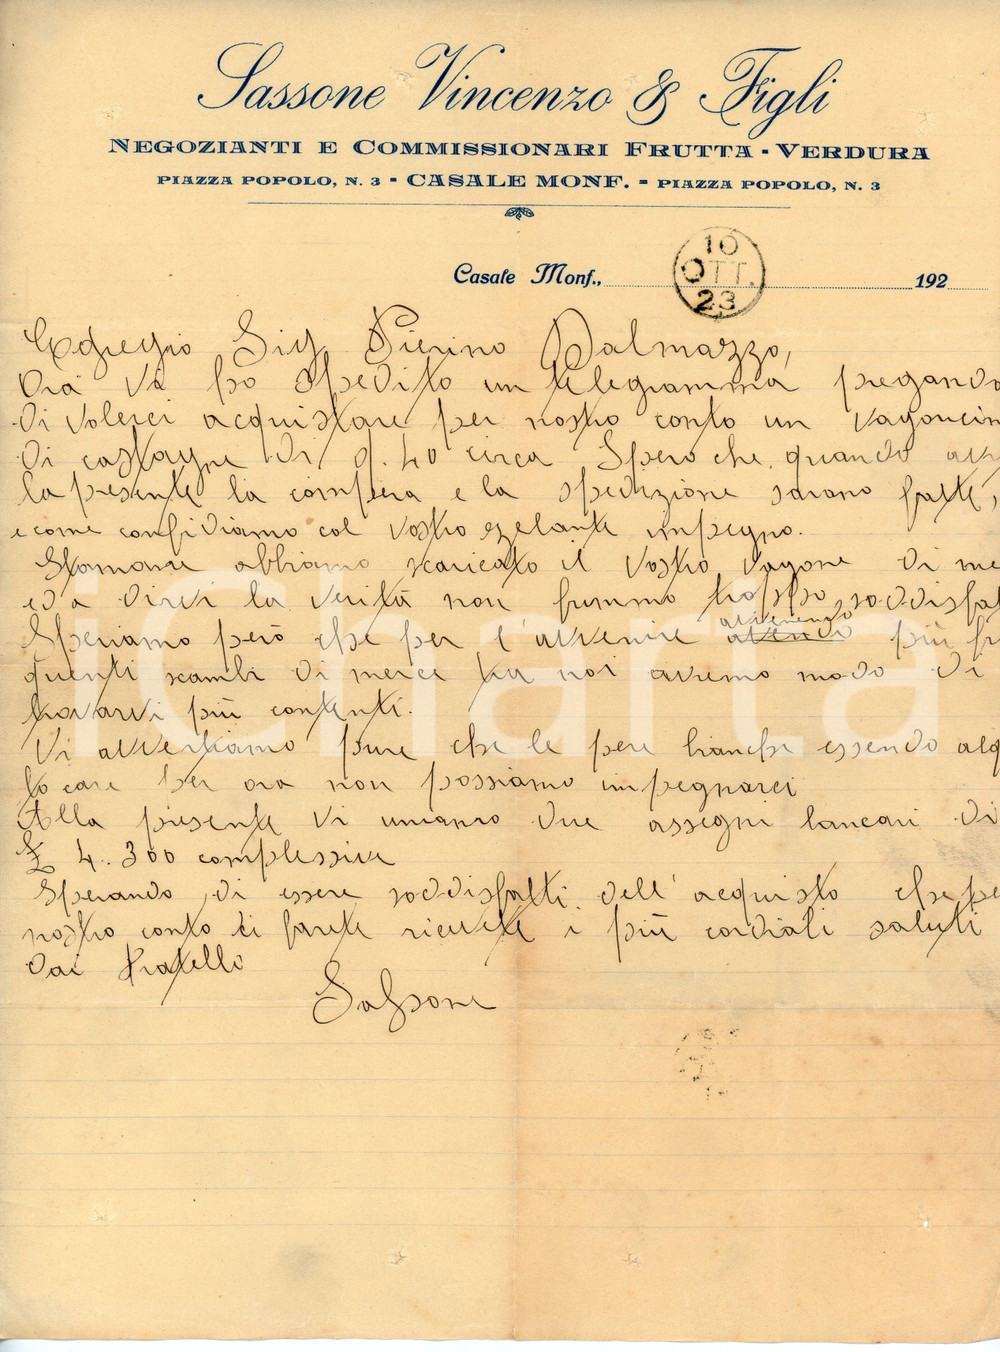 Sassone Vincenzo & Figli
NEGOZIANTI E COMMISSIONARI FRUTTA - VERDURA
PIAZZA POPOLO, N. 3 - CASALE MONF. - PIAZZA POPOLO, N. 3
Casale Monf., 10 OTT. 23 192
Egregio Sig Pierino Dalmazzo,
Già Vi ho spedito un telegramma pregando
di volerci acquistare per nostro conto un vagoncin
di castagne di q. 40 circa Spero che quando avr
la presente la compera e la spedizione sarano fatte,
e come confidiamo col vostro zelante impegno.
Stamane abbiamo scaricato il vostro vagone di me
ed a dirvi la verità non fummo troppo soddisfat
avvenendo
Speriamo però che per l'avvenire più fr
quenti scambi di merce tra noi avremo modo di
trovarvi più contenti.
Vi avvertiamo pure che le pere bianche essendo alq
to care per ora non possiamo impegnarci
Alla presente Vi uniamo due assegni bancari di
£ 4.300 complessive
Sperando di essere soddisfatti dell'acquisto che pe
nostro conto ci farete ricevete i più cordiali saluti
dai Fratello
Sassone
iCharta